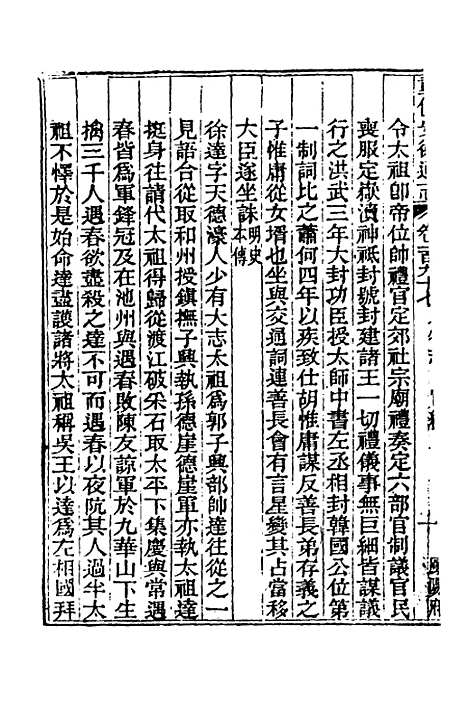 令太祖卽帝位帥禮官定郊社宗廟禮奏定六部官制議官民
喪服定嶽瀆神祇封號封建諸王一切禮儀事無巨細皆謀議
行之洪武三年大封功臣授太師中書左丞相封韓國公位第
一制詞比之蕭何四年以疾致仕胡惟庸謀反善長弟存義之
子惟庸從女壻也坐與交通詞連善長會有言星變其占當移
大臣遂坐誅明史本傳
徐達字天德濠人少有大志太祖爲郭子興部帥達往從之一
見語合從取和州授鎭撫子興執孫德崖德崖軍亦執太祖達
挺身往請代太祖得歸從渡江破采石取太平下集慶與常遇
春皆爲軍鋒冠及在池州與遇春敗陳友諒軍於九華山下生
擒三千人遇春欲盡殺之達不可而遇春以夜阬其人過半太
祖不懌於是始命達盡護諸將太祖稱吳王以達爲左相國拜